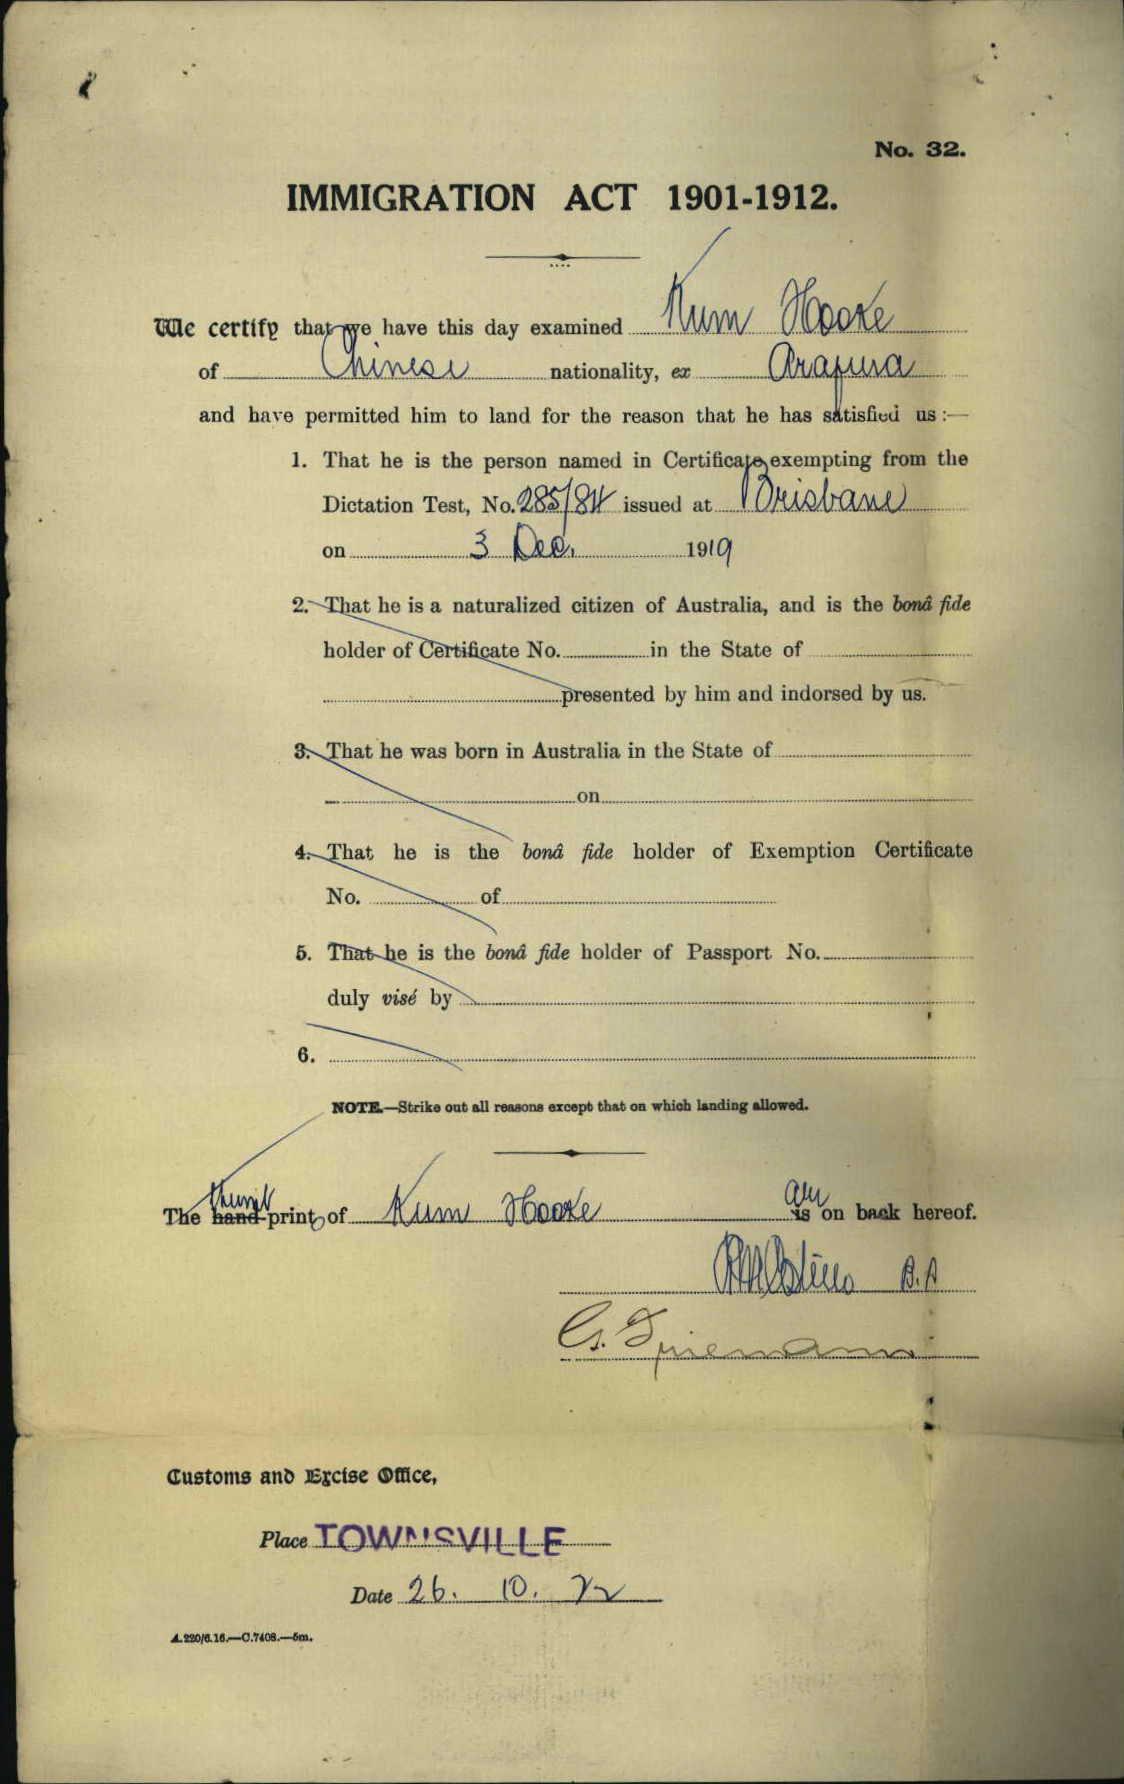 No. 32.
IMMIGRATION ACT 1901-1912.
We certify that we have this day examined Kum Hooke
of Chinese nationality, ex Arafura
and have permitted him to land for the reason that he has satisfied us :—
1. That he is the person named in Certificate exempting from the
Dictation Test, No. 285/84 issued at Brisbane
on 3 Dec. 1919
2. That he is a naturalized citizen of Australia, and is the bonâ fide
holder of Certificate No. in the State of
presented by him and indorsed by us.
3. That he was born in Australia in the State of
on
4. That he is the bonâ fide holder of Exemption Certificate
No. of
5. That he is the bonâ fide holder of Passport No.
duly visé by
6.
NOTE.—Strike out all reasons except that on which landing allowed.
thumb are
The hand-prints of Kum Hooke is on back hereof.
Customs and Excise Office,
Place TOWNSVILLE
Date 26. 10. 22
A.220/6.16.—C.7408.—5m.